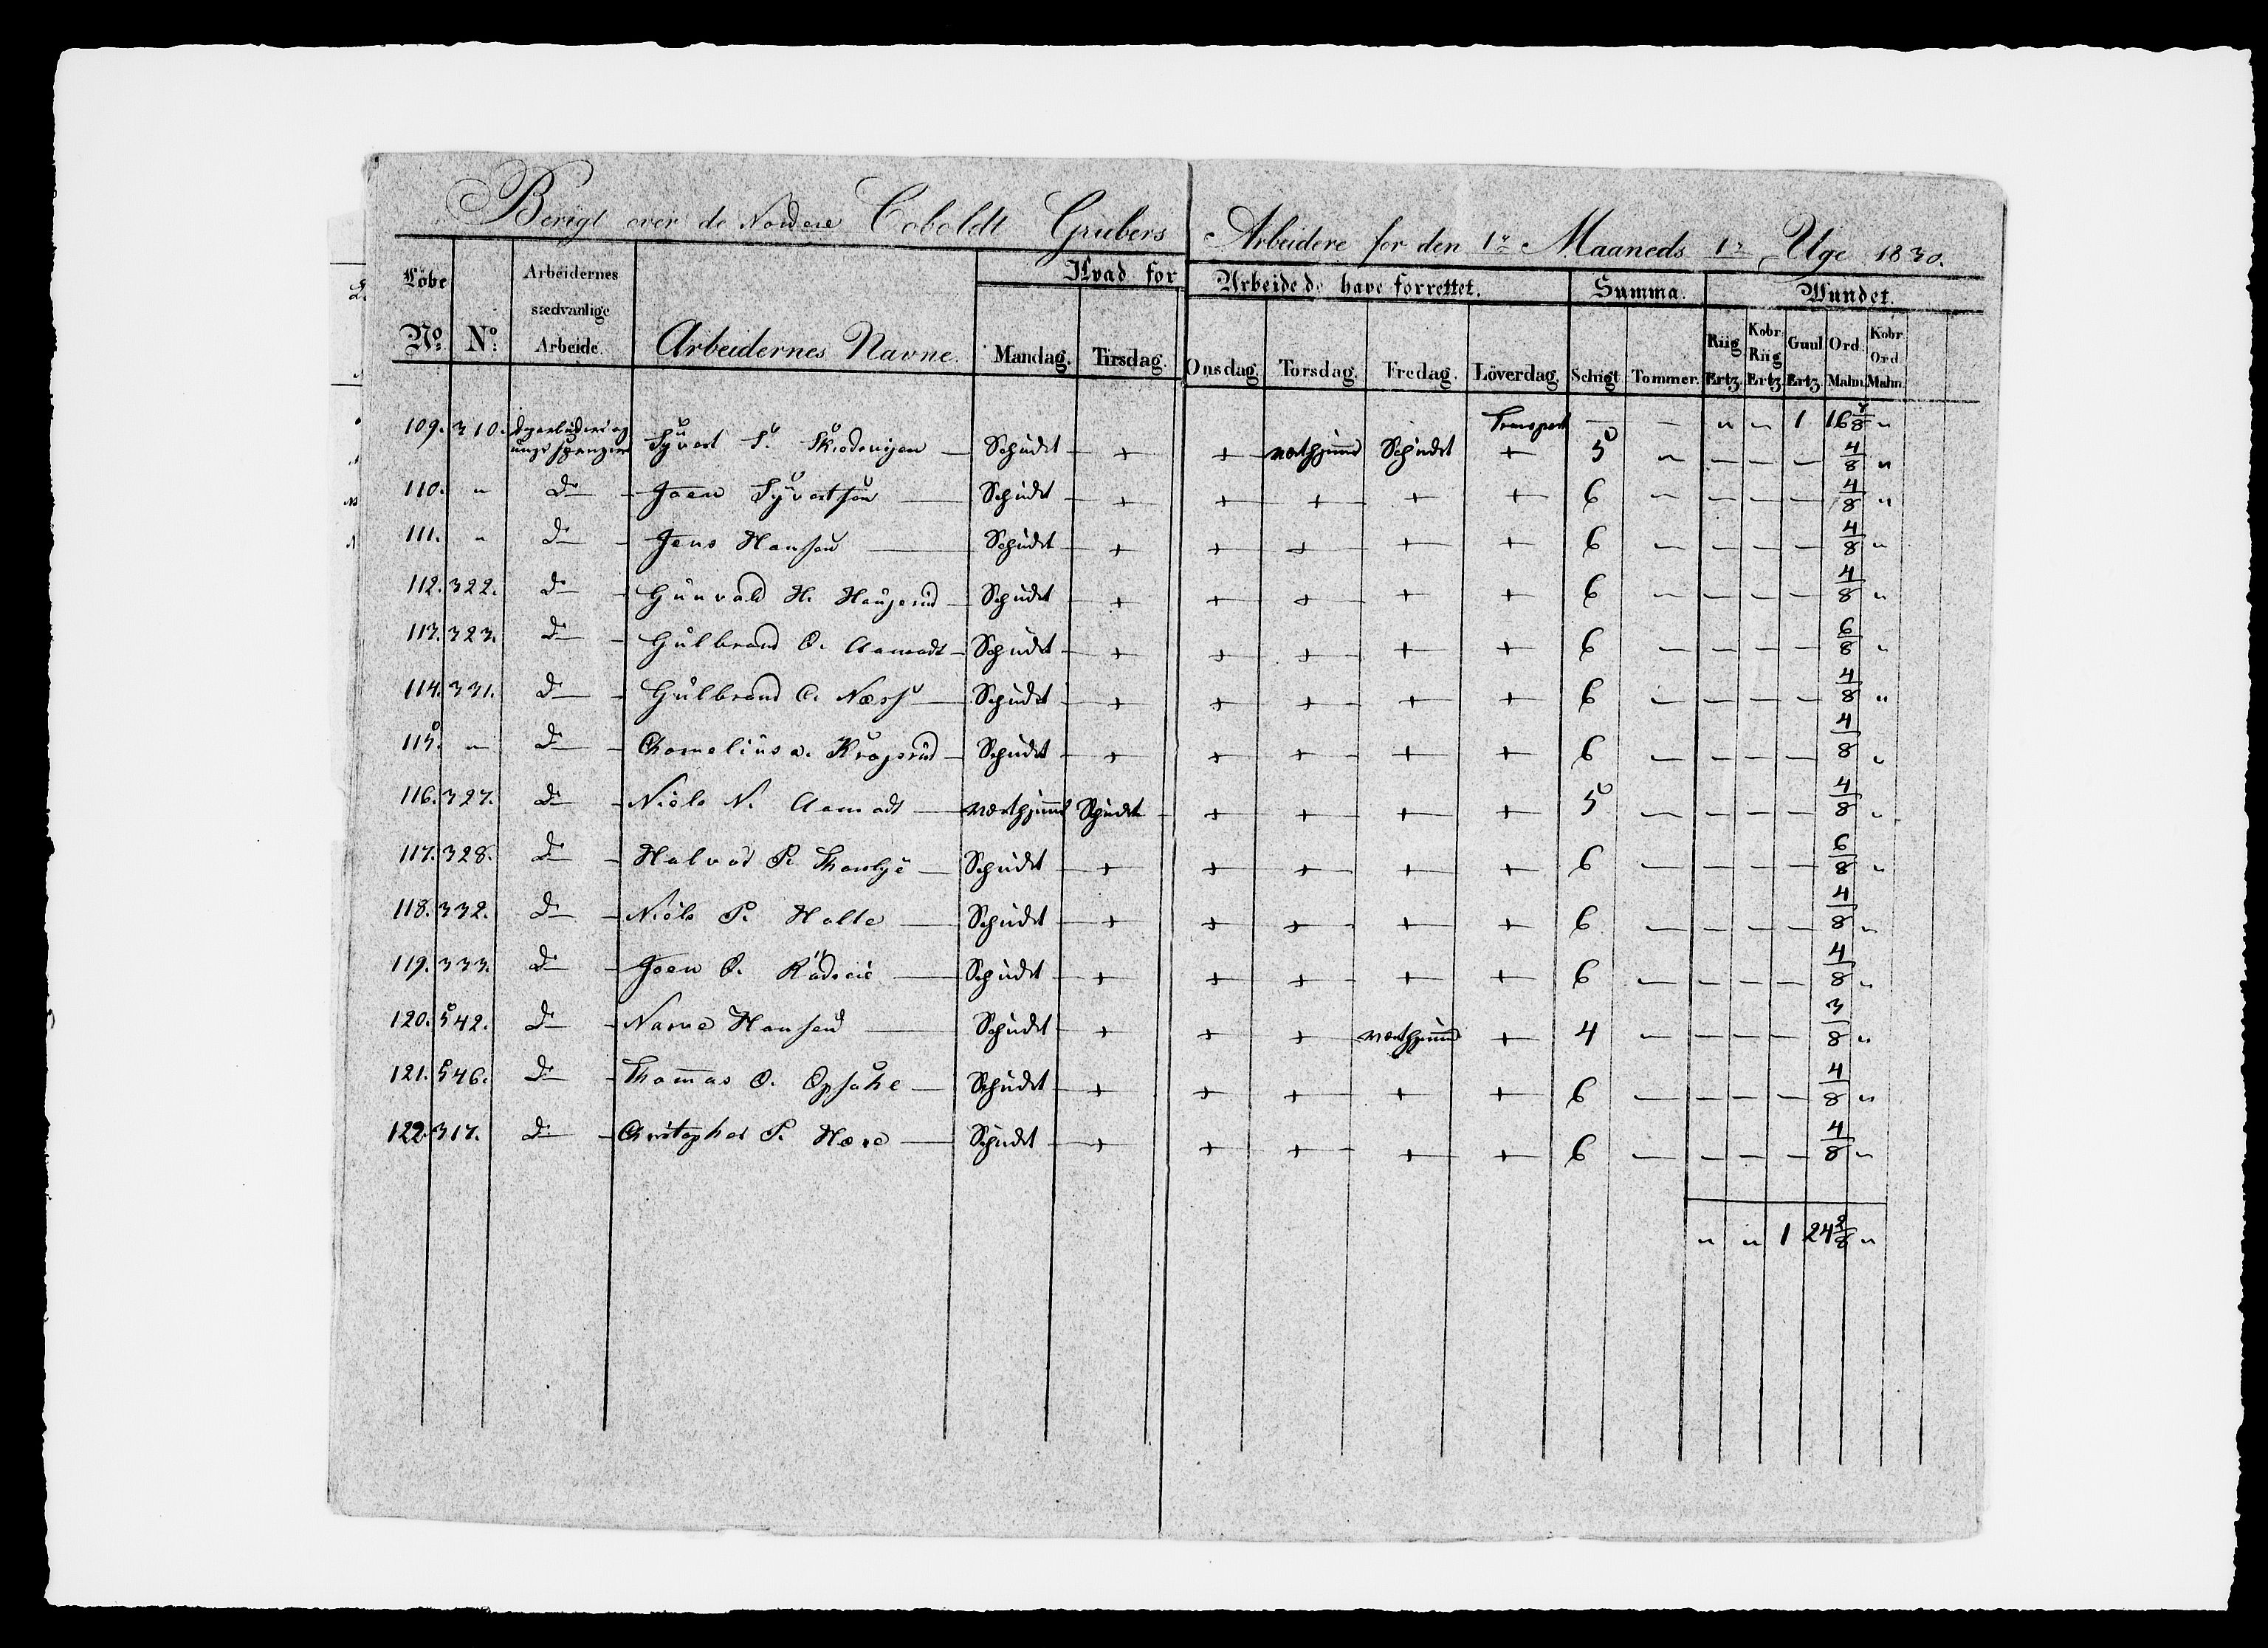 Berigt over de Nordere Coboldt Grubers Arbeidere for den 1ste Maaneds 1ste Uge 1830.
Löbe No. | No. | Arbeidernes sædvanlige Arbeide. | Arbeidernes Navne. | Hvad for Arbeide de have forrettet. | Summa. | Wundet.
Mandag. | Tirsdag. | Onsdag. | Torsdag. | Fredag. | Löverdag. | Schigt | Tommer. | Riig Ertz. | Kobr. Riig Ertz. | Guul Ertz. | Ord Malm. | Kobr. Ord. Malm.
Transport — — " " 1 16 "
109. 310. Sÿvert S. — Schüdt + + Schüdt + 5 " — — — 4/8 "
110. " Do — Joen Sÿvertsen — Schüdt + + + + + 6 — — — — 4/8 "
111. " Do — Jens Hansen — Schüdt + + + + + 6 — — — — 4/8 "
112. 322. Do — Gunvald H. Haugerud — Schüdt + + + + + 6 — — — — 4/8 "
113. 323. Do — Gulbrand O. Aamodt — Schüdt + + + + + 6 — — — — 6/8 "
114. 331. Do — Gulbrand C. Næss — Schüdt + + + + + 6 — — — — 4/8 "
115. " Do — Chornelius A. — Schüdt + + + + + 6 — — — — 4/8 "
116. 327. Do — Niels N. Aamodt — Schüdt + + + + 5 — — — — 4/8 "
117. 328. Do — Halvor P. — Schüdt + + + + + 6 — — — — 6/8 "
118. 332. Do — Niels P. Holte — Schüdt + + + + + 6 — — — — 4/8 "
119. 333. Do — Joen O. — Schüdt + + + + + 6 — — — — 4/8 "
120. 542. Do — Narve Hansen — Schüdt + + + + 4 — — — — 3/8 "
121. 546. Do — Thommas O. Opsahl — Schüdt + + + + + 6 — — — — 4/8 "
122. 317. Do — Christopher P. — Schüdt + + + + + 6 — — — — 4/8 "
" " 1 24 2/8 "